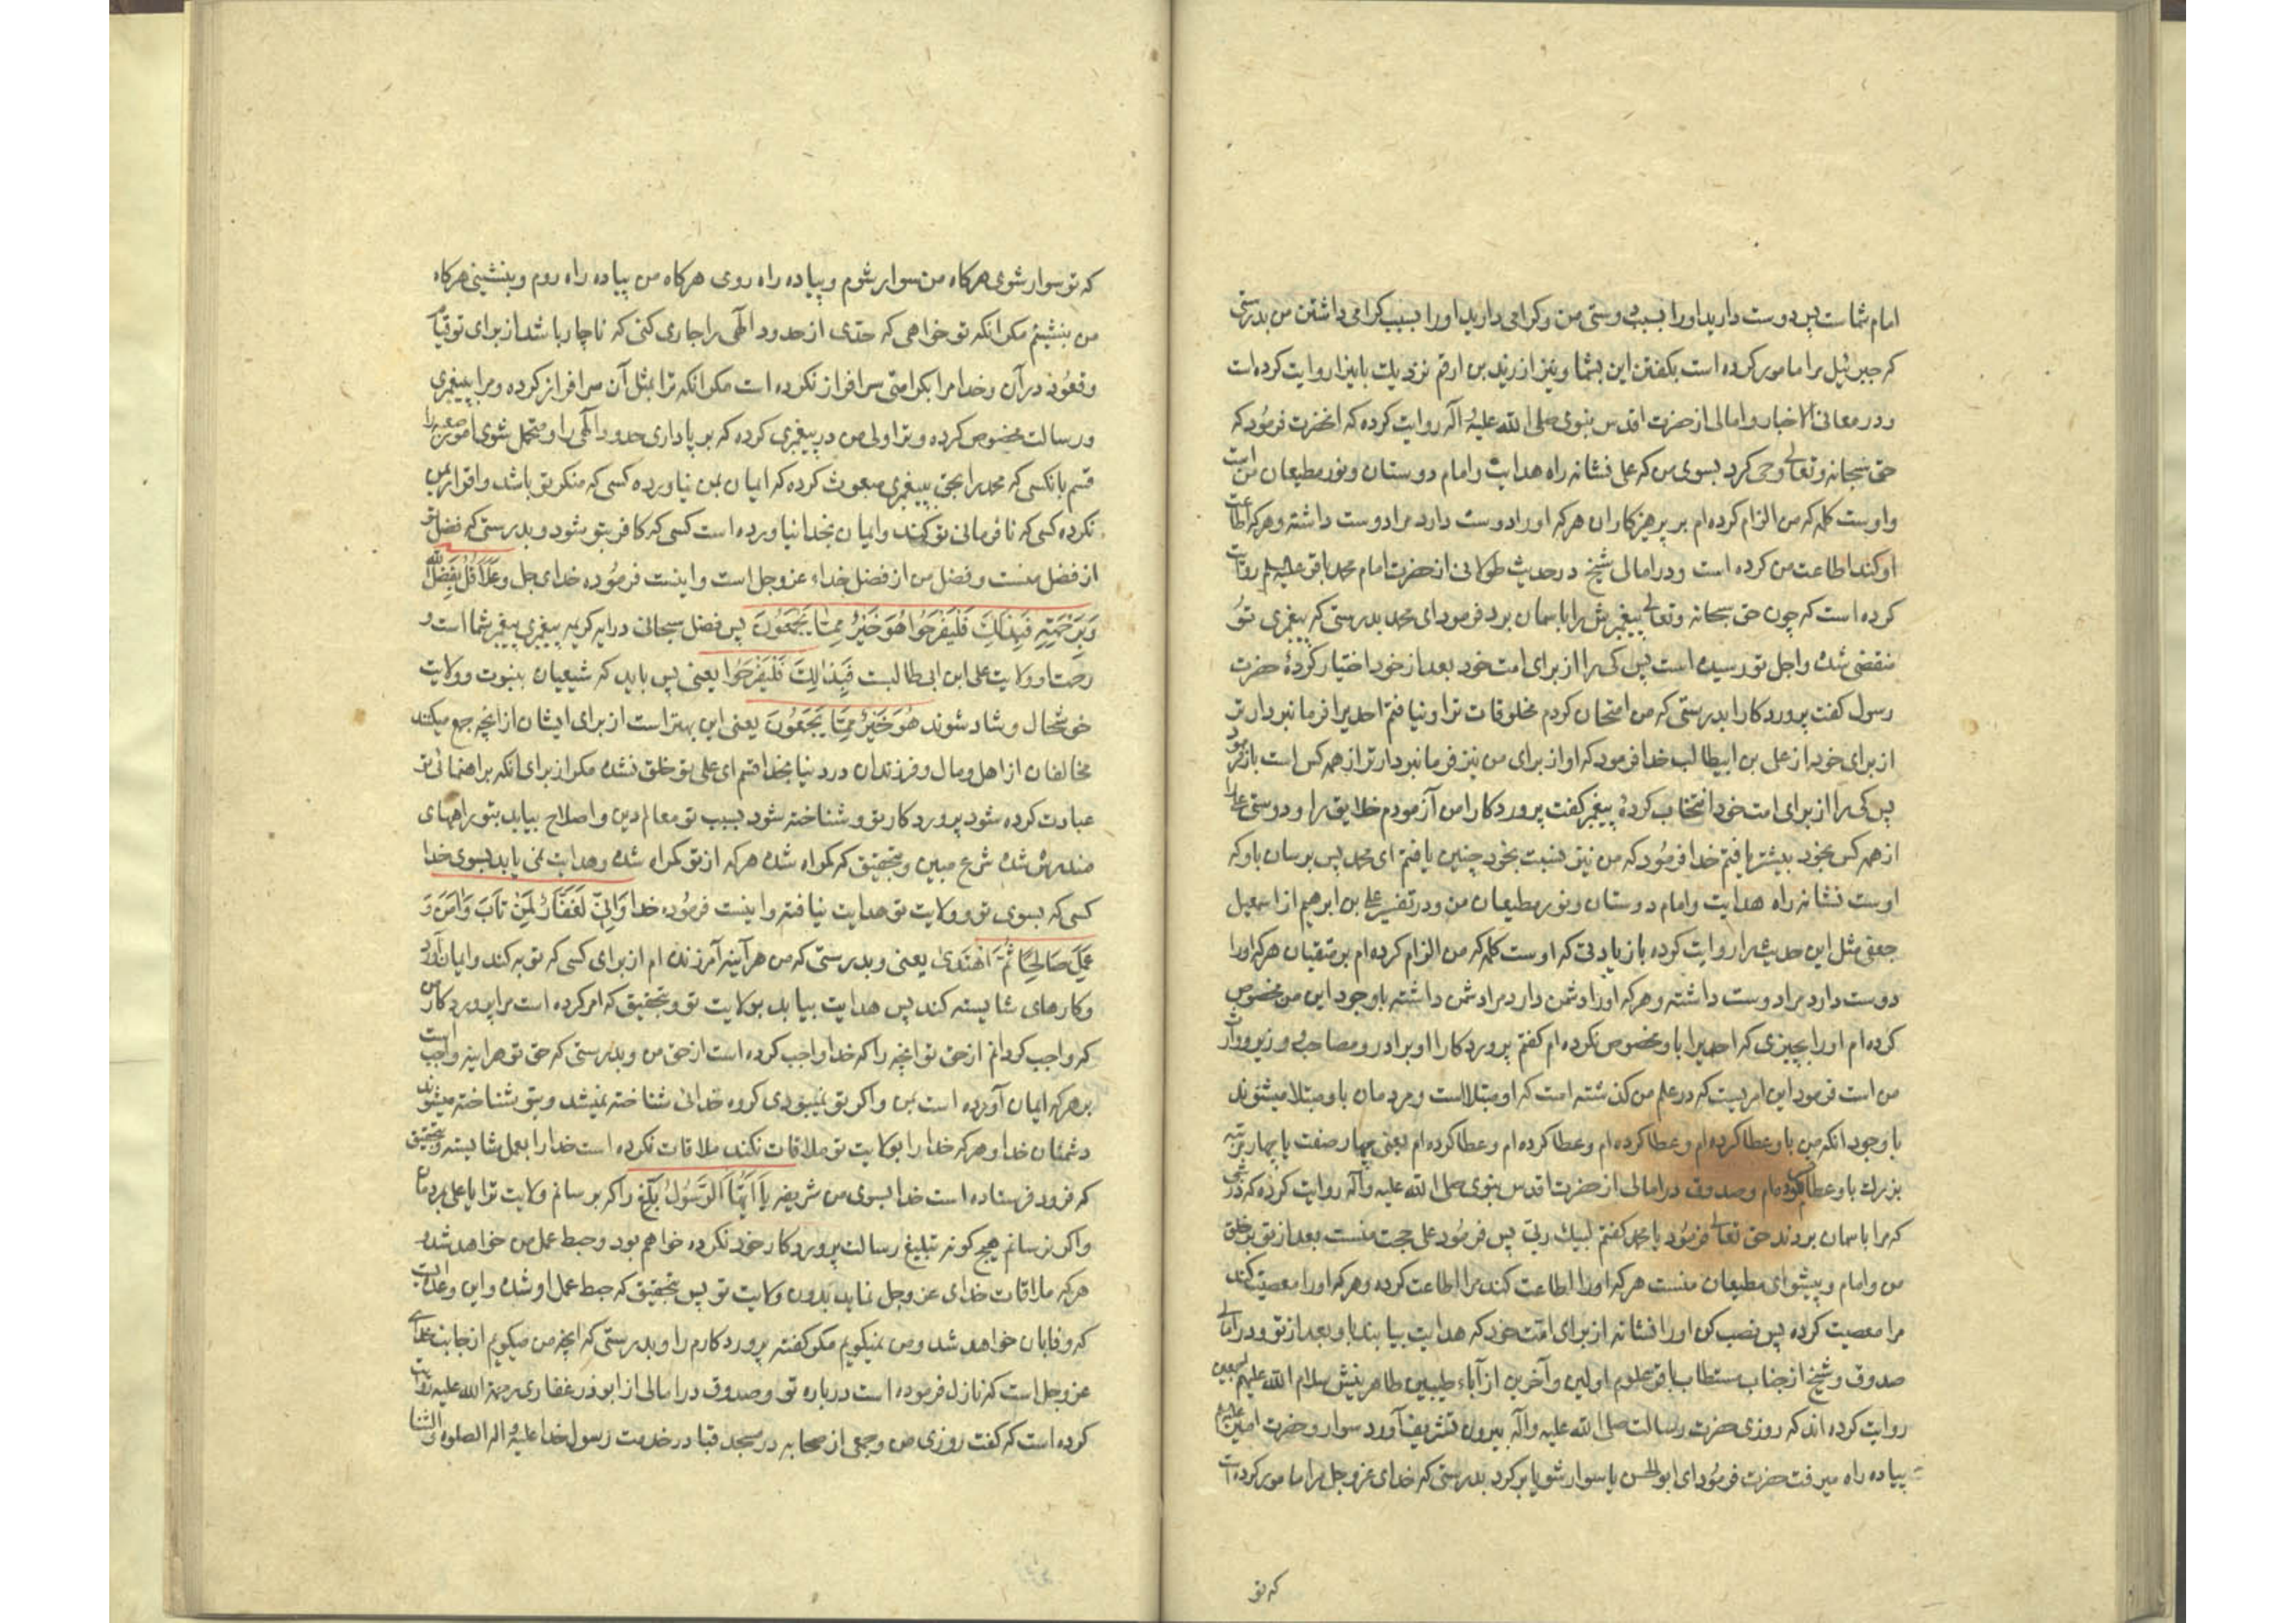 امام شماست پس دوست دارید او را بسبب دوستی من و کرامی دارید او را بسبب کرامی داشتن من بدرستی
که جبرئیل مرا مامور کرده است بکفتن این بشما و نیز از زید بن ارقم نزدیک باینرا روایت کرده است
و در معانی الاخبار و امالی از حضرت اقدس نبوی صلی الله علیه و آله روایت کرده که آنحضرت فرمود که
حق سبحانه و تعالی وحی کرد بسوی من که علی نشانه راه هدایت و امام دوستان و نور مطیعان من است
و اوست کلمه که من الزام کرده ام بر پرهیزکاران هرکه او را دوست دارد مرا دوست داشته و هرکه اطاعت
او کند اطاعت من کرده است و در امالی شیخ در حدیث طولانی از حضرت امام محمد باقر علیه السلم روایت
کرده است که چون حق سبحانه و تعالی پیغمبرش را باسمان برد فرمود ای محمد بدرستی که پیغمبری تو
منقضی شده و اجل تو رسیده است پس کی را از برای امت خود بعد از خود اختیار کردۀ حضرت
رسول کفت پروردکارا بدرستی که من امتحان کردم مخلوقات ترا و نیافتم احدیرا فرمانبردارتر
از برای خود از علی بن ابیطالب خدا فرمود که او از برای من نیز فرمانبردارتر از همه کس است باز فرمود
پس کی را از برای امت خود انتخاب کردۀ پیغمبر کفت پروردکارا من آزمودم خلایق را و دوستی علی را
از همه کس بخود بیشتر یافتم خدا فرمود که من نیز نسبت بخود چنین یافتم ای محمد پس برسان باو که
اوست نشانه راه هدایت و امام دوستان و نور مطیعان من و در تفسیر علی بن ابرهیم از اسمعیل
جعفی مثل این حدیث را روایت کرده بازیادتی که اوست کلمه که من الزام کرده ام بر متقیان هرکه او را
دوست دارد مرا دوست داشته و هرکه او را دشمن دارد مرا دشمن داشته باوجود این من مخصوص
کرده ام او را بچیزی که احدیرا باو مخصوص نکرده ام کفتم پروردکارا او برادر و مصاحب و وزیر و وارث
من است فرمود این امریست که در علم من کذشته است که او مبتلاست و مردمان باو مبتلا میشوند
باوجود انکه من باو عطا کرده ام و عطا کرده ام و عطا کرده ام و عطا کرده ام یعنی چهار صفت یا چهار مرتبه
بزرک باو عطا کرده ام و صدوق در امالی از حضرت اقدس نبوی صلی الله علیه و آله روایت کرده که در شبی
که مرا باسمان بردند حق تعالی فرمود یا محمد کفتم لبیک ربی پس فرمود علی حجت منست بعد از تو بر خلق
من و امام و پیشوای مطیعان منست هرکه او را اطاعت کند مرا اطاعت کرده و هرکه او را معصیت کند
مرا معصیت کرده پس نصب کن او را نشانه از برای امت خود که هدایت بیابند باو بعد از تو و در امالی
صدوق و شیخ از جناب مستطاب باقر علوم اولین و آخرین از آباء طیبین طاهرینش سلام الله علیهم اجمعین
روایت کرده اند که روزی حضرت رسالت صلی الله علیه و آله بیرون تشریف آورد سوار و حضرت امیر
پیاده راه میرفت حضرت فرمود ای ابو الحسن یا سوار شو یا برکرد بدرستی که خدای عز و جل مرا مامور کرده است
که تو
که تو سوار شوی هرکاه من سوار شوم و پیاده راه روی هرکاه من پیاده راه روم و بنشینی هرکاه
من بنشینم مکر انکه تو خواهی که حدی از حدود الهی را جاری کنی که ناچار باشد از برای تو قیام
و قعود در آن و خدا مرا بکرامتی سرافراز نکرده است مکر انکه ترا بمثل آن سرافراز کرده و مرا پیغمبری
و رسالت مخصوص کرده و ترا ولی من در پیغمبری کرده که برپاداری حدود الهی را و متحمل شوی امور صعبه را
قسم بانکسی که محمد را بحق پیغمبری مبعوث کرده که ایمان بمن نیاورده کسی که منکر تو باشد و اقرار بمن
نکرده کسی که نافرمانی تو کند و ایمان بخدا نیاورده است کسی که کافر بتو شود و بدرستی که فضل تو
از فضل منست و فضل من از فضل خداء عز و جل است و اینست فرموده خدای جل و علا قُل بِفَضلِ الله
وَ بِرَحمَتِهِ فَبِذٰلِکَ فَلیَفرَحُوا هُوَ خَیرٌ مِمّا یَجمَعُونَ پس فضل سبحانی در ایه کریمه پیغمبری پیغمبر شما است و
رحمت او ولایت علی ابن ابی طالبست فَبِذٰلِکَ فَلیَفرَحُوا یعنی پس باید که شیعیان بنبوت و ولایت
خوشحال و شاد شوند هُوَ خَیرٌ مِمّا یَجمَعُونَ یعنی این بهتر است از برای ایشان از انچه جمع میکنند
مخالفان از اهل و مال و فرزندان در دنیا بخدا قسم ای علی تو خلق نشده مکر از برای انکه براهنمائی تو
عبادت کرده شود پروردکار تو و شناخته شود بسبب تو معالم دین و اصلاح بیابد بتو راههای
مندرس شده شرع مبین و بتحقیق که کمراه شده هرکه از تو کمراه شده و هدایت نمی یابد بسوی خدا
کسی که بسوی تو و ولایت تو هدایت نیافته و اینست فرموده خدا وَ اِنّی لَغَفّارٌ لِمَن تابَ وَ آمَنَ وَ
عَمِلَ صالِحًا ثُمَّ اهتَدیٰ یعنی و بدرستی که من هرآینه آمرزنده ام از برای کسی که توبه کند و ایمان آورد
و کارهای شایسته کند پس هدایت بیابد بولایت تو و بتحقیق که امر کرده است مرا پروردکار من
که واجب کردانم از حق تو انچه را که خدا واجب کرده است از حق من و بدرستی که حق تو هراینه واجب است
بر هرکه ایمان آورده است بمن و اکر تو نمیبودی کروه خدائی شناخته نمیشد و بتو شناخته میشوند
دشمنان خدا و هرکه خدا را بولایت تو ملاقات نکند ملاقات نکرده است خدا را بعمل شایسته و بتحقیق
که فرود فرستاده است خدا بسوی من شریفه یٰا اَیُّهَا الرَّسُولُ بَلِّغ را که برسانم ولایت ترا یا علی بمردمان
و اکر نرسانم هیچ کونه تبلیغ رسالت پروردکار خود نکرده خواهم بود و حبط عمل من خواهد شد و
هرکه ملاقات خدای عز و جل نماید بدون ولایت تو پس بتحقیق که حبط عمل او شده و این وعده ایست
که وفا بان خواهد شد و من نمیکویم مکر کفته پروردکارم را و بدرستی که انچه من میکویم از جانب خدای
عز و جل است که نازل فرموده است درباره تو و صدوق در امالی از ابوذر غفاری رحمة الله علیه روایت
کرده است که کفت روزی من و جمعی از صحابه در مسجد قبا در خدمت رسول خدا علیه و اله الصلوه و الثنا